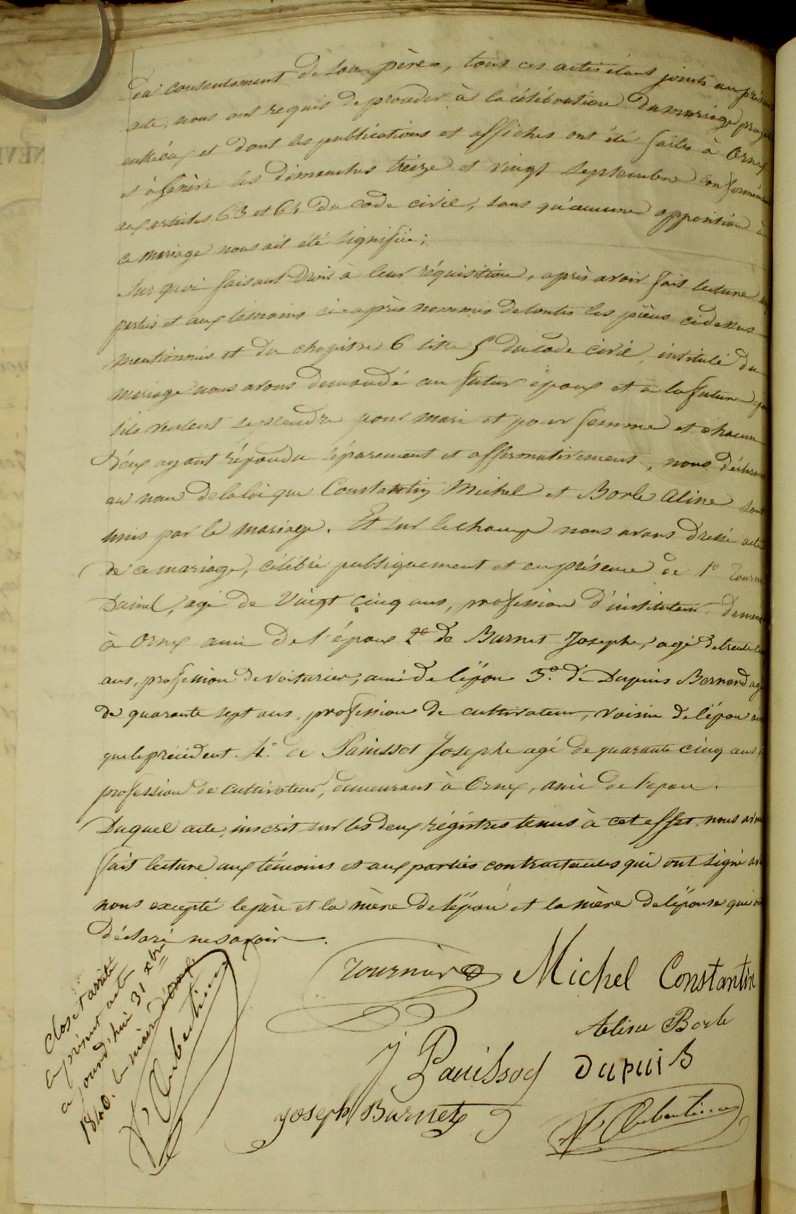 du consentement de son père, tous ces actes étant joints au présent
acte, nous ont requis de procéder à la célébration du mariage projeté
entr'eux et dont les publications et affiches ont été faites à Ornex
et à les dimanches treize et vingt Septembre conformément
aux articles 63 et 64 du code civil, sans qu'aucune opposition à
ce mariage nous ait été signifiée;
Sur quoi faisant droit à leur réquisition, après avoir fait lecture aux
parties et aux témoins ci-après nommés de toutes les pièces cidessus
mentionnés et du chapitre 6 titre 5 du code civil, intitulé du
mariage nous avons demandé au futur époux et à la future
s'ils veulent se prendre pour mari et pour femme et chacun
d'eux ayant répondu séparement et affirmativement, nous déclarons
au nom de la loi que Constantin Michel et Borle Aline sont
unis par le mariage. Et sur le champ nous avons dressé acte
de ce mariage, célébré publiquement et en présence de 1° Tournier
Daniel, agé de Vingt cinq ans, profession d'instituteur
à Ornex ami de l'époux 2° de Burnet Josephe, agé de trente
ans, profession de voiturier, ami de l'époux 3° de Dupuis Bernard agé
de quarante sept ans, profession de cultivateur, voisin de l'époux ainsi
que le précédent. 4° de Panissod Josephe agé de quarante cinq ans,
profession de cultivateur, demeurant à Ornex, ami de l'époux.
Duquel acte, inscrit sur les deux régistres tenus à cet effet, nous avons
fait lecture aux témoins et aux parties contractantes qui ont signé avec
nous excepté le père et la mère de l'époux et la mère de l'épouse qui ont
déclaré ne savoir.
Tournier D Michel Constantin
Aline Borle
J Panissod Dupuis
Joseph Burnet
Clos et arrêté
le présent acte
aujourd'hui 31 xbre
1840. le maire d'Ornex